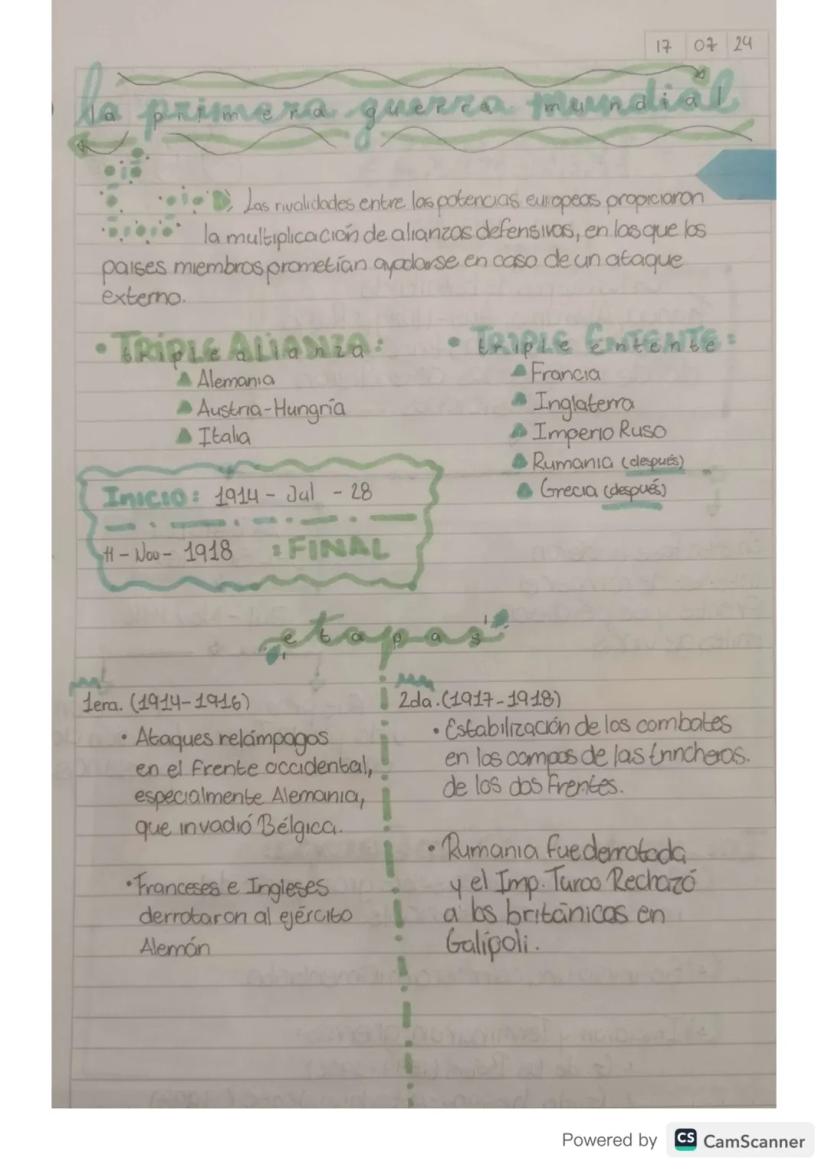 17 07 24
la primera guerra mundial
Las rivalidades entre las potencias europeas propiciaron
la multiplicación de alianzas defensivas, en las que los
paises miembros prometían ayudarse en caso de un ataque
externo.
• TRIPLE ALIANZA:
▲ Alemania
▲ Austria-Hungría
▲ Italia
• TRIPLE ENTENTE:
▲ Francia
▲ Inglaterra
▲ Imperio Ruso
▲ Rumania (después)
▲ Grecia (después)
INICIO: 1914 - Jul - 28
11 - Nov - 1918 : FINAL
etapas
1era. (1914-1916)
• Ataques relámpagos
en el Frente occidental,
especialmente Alemania,
que invadió Bélgica.
• Franceses e Ingleses
derrotaron al ejército
Alemán
2da. (1917-1918)
• Estabilización de los combates
en los campos de las trincheras.
de los dos Frentes.
• Rumania fue derrotada
y el Imp. Turco Rechazó
a los británicos en
Galípoli.
Powered by CS CamScanner